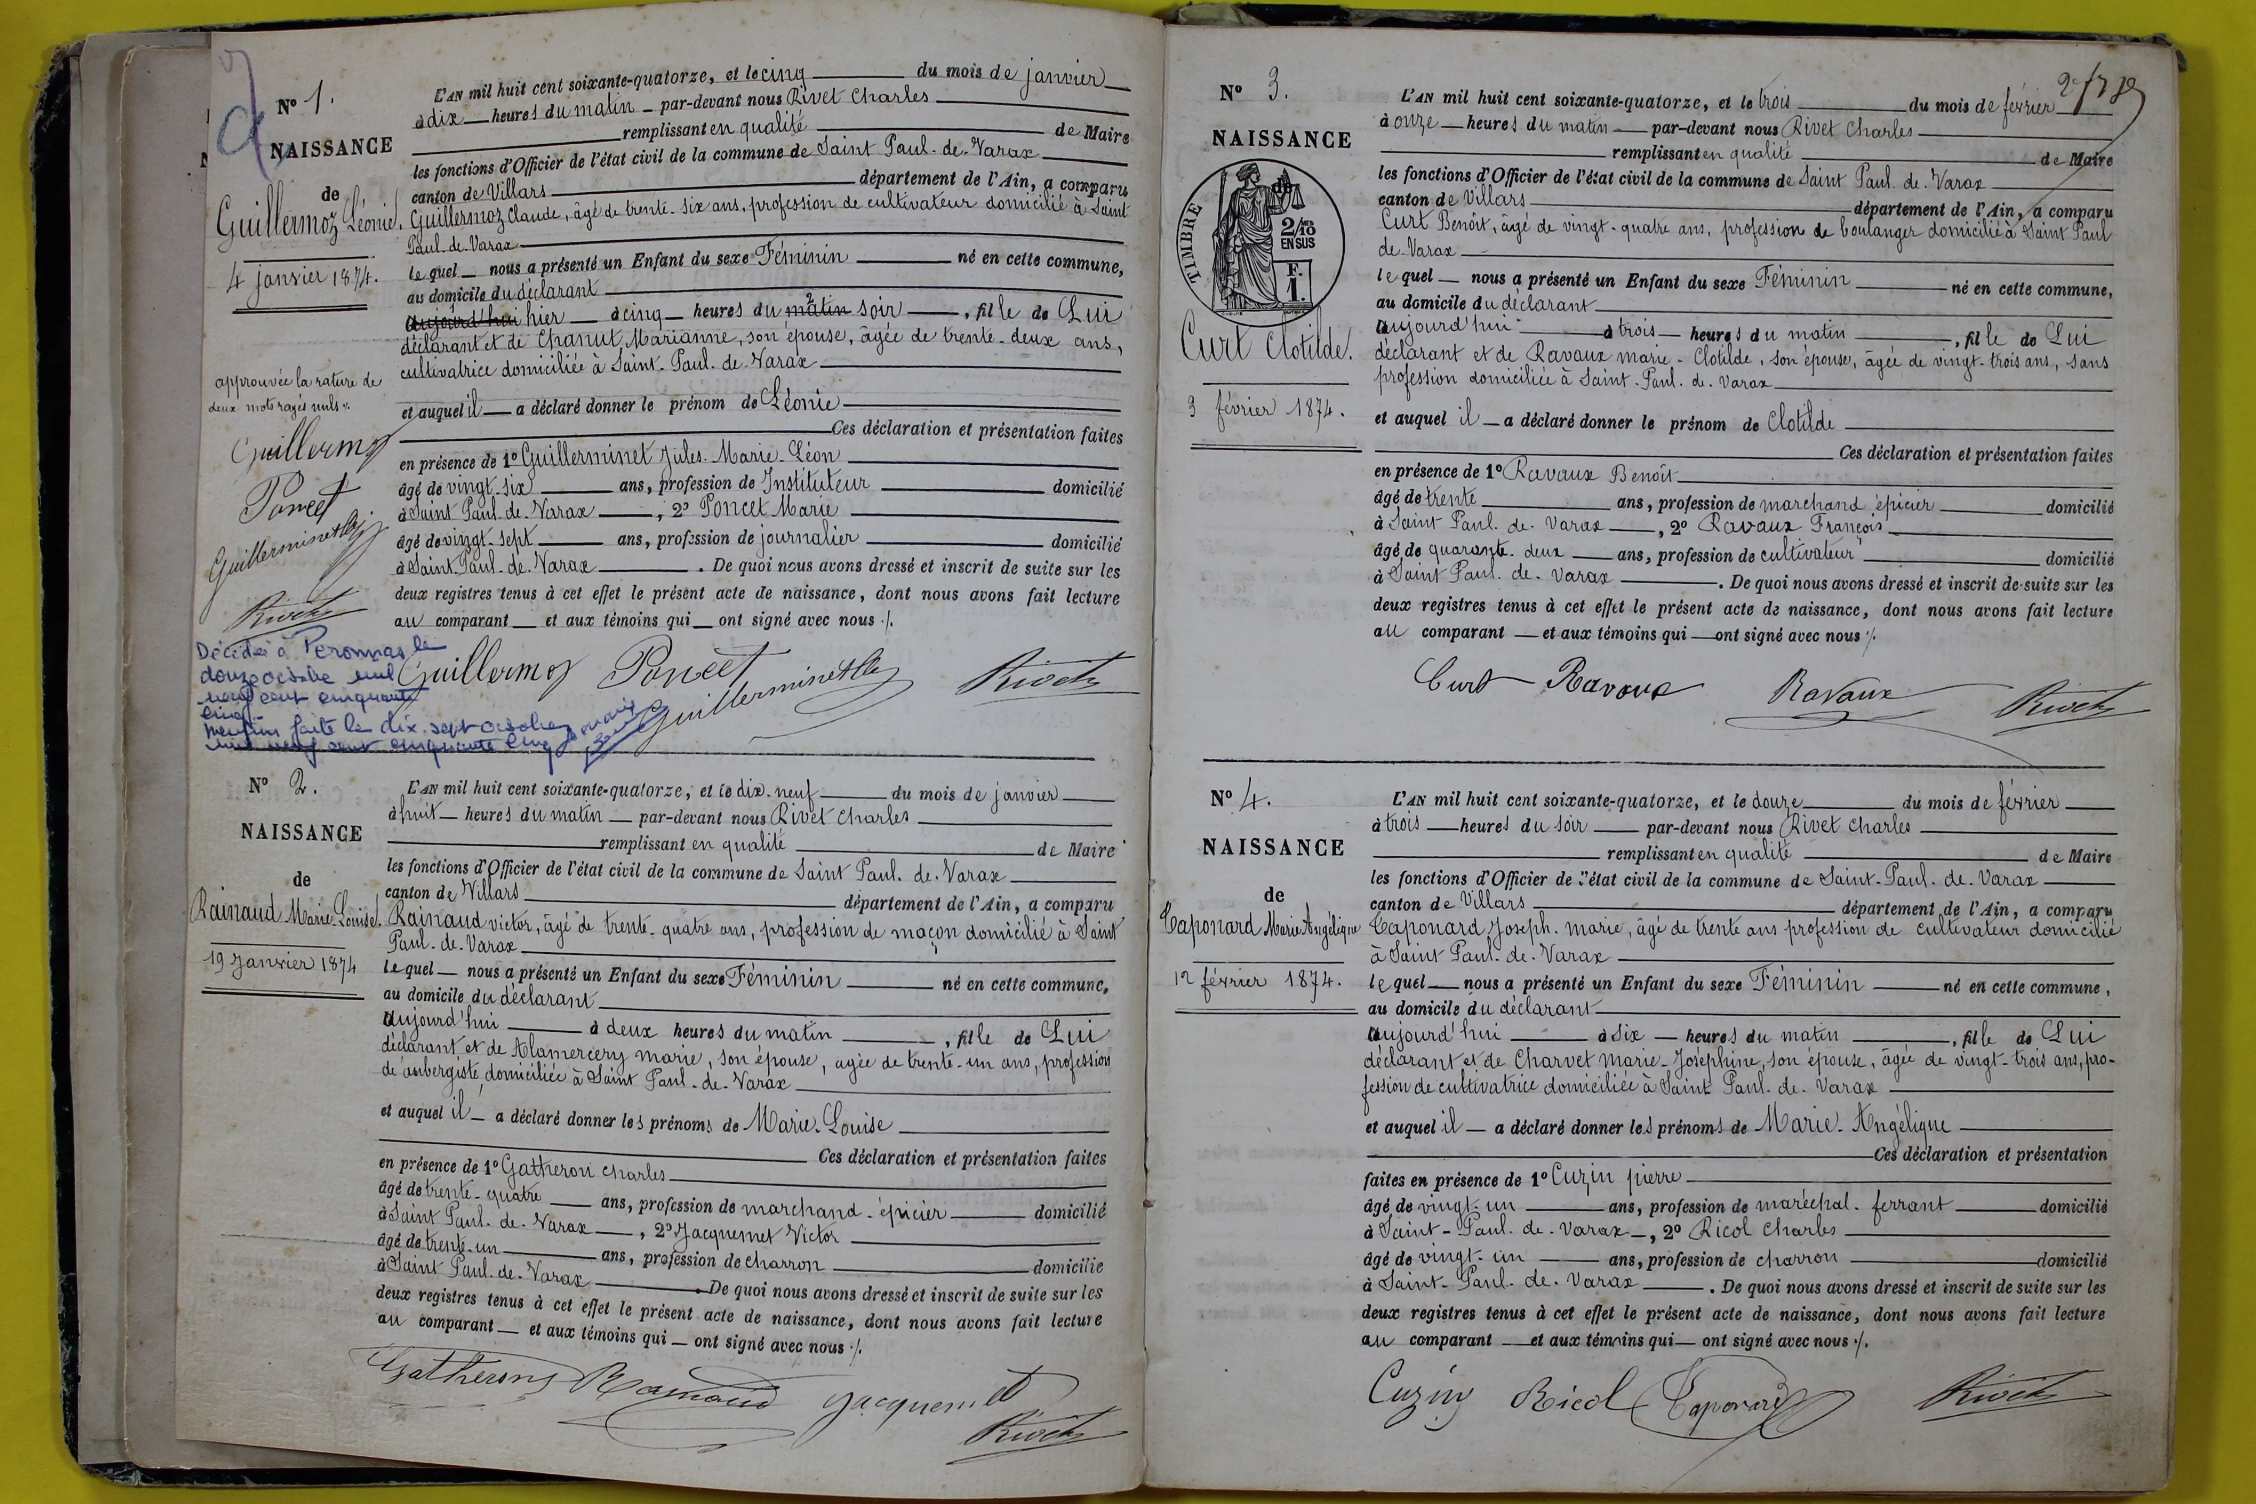 N° 1.
NAISSANCE
de
Guillermoz Léonie.
4 janvier 1874.
approuvée la rature de
deux mots rayés nuls ./.
Guillermoz
Poncet
Guillerminet
Rivet
Décédée à Péronnas le
douze octobre mil
neuf cent cinquante
cinq.
Mention faite le dix-sept octobre
mil neuf cent cinquante cinq
L'AN mil huit cent soixante-quatorze, et le cinq du mois de janvier
à dix heures du matin par-devant nous Rivet Charles
remplissant en qualité de Maire
les fonctions d'Officier de l'état civil de la commune de Saint Paul-de-Varax
canton de Villars département de l'Ain, a comparu
Guillermoz Claude, âgé de trente-six ans, profession de cultivateur domicilié à Saint
Paul-de-Varax
lequel nous a présenté un Enfant du sexe Féminin né en cette commune,
au domicile du déclarant
aujourd'hui hier à cinq heures du matin soir, fille de Lui
déclarant et de Chanut Marianne, son épouse, âgée de trente-deux ans,
cultivatrice domiciliée à Saint-Paul-de-Varax
et auquel il a déclaré donner le prénom de Léonie
Ces déclaration et présentation faites
en présence de 1° Guillerminet Jules-Marie-Léon
âgé de vingt-six ans, profession de Instituteur domicilié
à Saint Paul-de-Varax, 2° Poncet Marie
âgé de vingt-sept ans, profession de journalier domicilié
à Saint-Paul-de-Varax. De quoi nous avons dressé et inscrit de suite sur les
deux registres tenus à cet effet le présent acte de naissance, dont nous avons fait lecture
au comparant et aux témoins qui ont signé avec nous ./.
Guillermoz Poncet Guillerminet Rivet
N° 2.
NAISSANCE
de
Rainaud Marie-Louise.
19 Janvier 1874
L'AN mil huit cent soixante-quatorze, et le dix-neuf du mois de janvier
à huit heures du matin par-devant nous Rivet Charles
remplissant en qualité de Maire
les fonctions d'Officier de l'état civil de la commune de Saint Paul-de-Varax
canton de Villars département de l'Ain, a comparu
Rainaud victor, âgé de trente-quatre ans, profession de maçon domicilié à Saint
Paul-de-Varax
lequel nous a présenté un Enfant du sexe Féminin né en cette commune,
au domicile du déclarant
aujourd'hui à deux heures du matin, fille de Lui
déclarant et de Alamercery marie, son épouse, agée de trente-un ans, profession
de aubergiste domiciliée à Saint Paul-de-Varax
et auquel il a déclaré donner les prénoms de Marie-Louise
Ces déclaration et présentation faites
en présence de 1° Gatheron Charles
âgé de trente-quatre ans, profession de marchand-épicier domicilié
à Saint Paul-de-Varax, 2° Jacquemet Victor
âgé de trente-un ans, profession de charron domicilié
à Saint Paul-de-Varax. De quoi nous avons dressé et inscrit de suite sur les
deux registres tenus à cet effet le présent acte de naissance, dont nous avons fait lecture
au comparant et aux témoins qui ont signé avec nous ./.
Gatheron Rainaud Jacquemet
Rivet
N° 3.
NAISSANCE
TIMBRE
2/10 EN SUS
F. 1.
Curt Clotilde.
3 février 1874.
L'AN mil huit cent soixante-quatorze, et le trois du mois de février
à onze heures du matin par-devant nous Rivet Charles
remplissant en qualité de Maire
les fonctions d'Officier de l'état civil de la commune de Saint Paul-de-Varax
canton de Villars département de l'Ain, a comparu
Curt Benoît, âgé de vingt-quatre ans, profession de boulanger domicilié à Saint Paul
de-Varax
lequel nous a présenté un Enfant du sexe Féminin né en cette commune,
au domicile du déclarant
aujourd'hui à trois heures du matin, fille de Lui
déclarant et de Ravaux marie-Clotilde, son épouse, âgée de vingt-trois ans, sans
profession domiciliée à Saint-Paul-de-Varax
et auquel il a déclaré donner le prénom de Clotilde
Ces déclaration et présentation faites
en présence de 1° Ravaux Benoît
âgé de trente ans, profession de marchand épicier domicilié
à Saint Paul-de-Varax, 2° Ravaux François
âgé de quarante-deux ans, profession de cultivateur domicilié
à Saint Paul-de-Varax. De quoi nous avons dressé et inscrit de suite sur les
deux registres tenus à cet effet le présent acte de naissance, dont nous avons fait lecture
au comparant et aux témoins qui ont signé avec nous ./.
Curt Ravaux Ravaux Rivet
N° 4.
NAISSANCE
de
Taponard Marie Angélique
12 février 1874.
L'AN mil huit cent soixante-quatorze, et le douze du mois de février
à trois heures du soir par-devant nous Rivet Charles
remplissant en qualité de Maire
les fonctions d'Officier de l'état civil de la commune de Saint-Paul-de-Varax
canton de Villars département de l'Ain, a comparu
Taponard Joseph-marie, âgé de trente ans profession de cultivateur domicilié
à Saint Paul-de-Varax
lequel nous a présenté un Enfant du sexe Féminin né en cette commune,
au domicile du déclarant
aujourd'hui à six heures du matin, fille de Lui
déclarant et de Charvet Marie-Joséphine, son épouse, âgée de vingt-trois ans, pro-
fession de cultivatrice domiciliée à Saint Paul-de-Varax
et auquel il a déclaré donner les prénoms de Marie-Angélique
Ces déclaration et présentation
faites en présence de 1° Cuzin pierre
âgé de vingt-un ans, profession de maréchal-ferrant domicilié
à Saint-Paul-de-Varax, 2° Ricol Charles
âgé de vingt-un ans, profession de charron domicilié
à Saint-Paul-de-Varax. De quoi nous avons dressé et inscrit de suite sur les
deux registres tenus à cet effet le présent acte de naissance, dont nous avons fait lecture
au comparant et aux témoins qui ont signé avec nous ./.
Cuzin Ricol Taponard Rivet